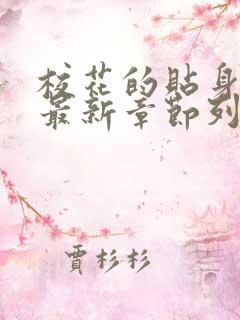 校花的貼身
最新章節列
賈杉杉